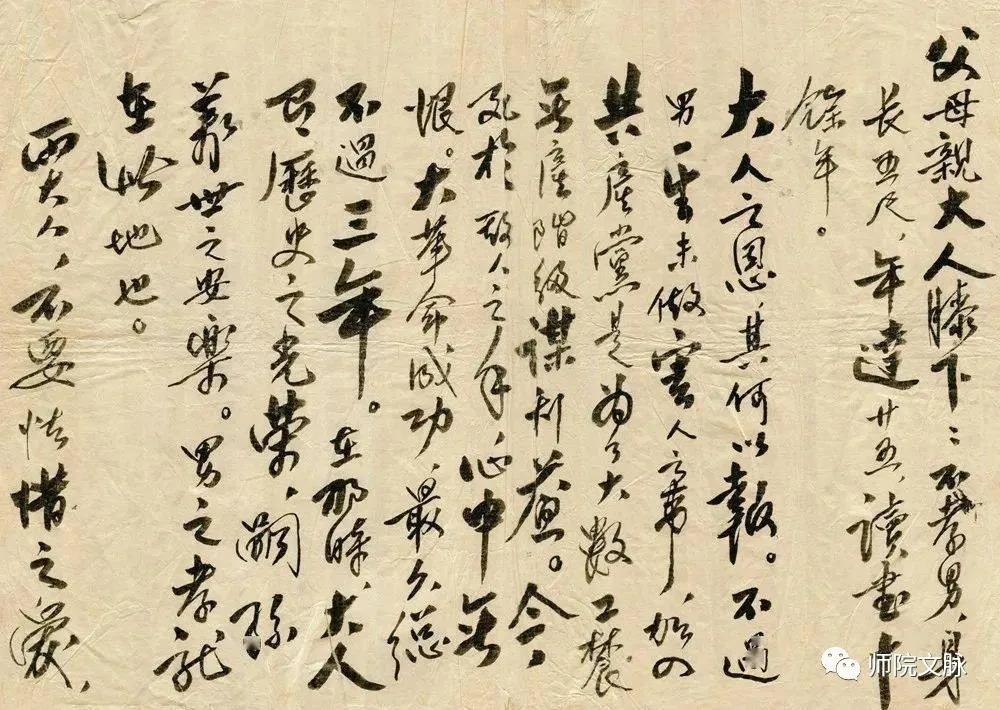 父母親大人膝下：不孝男，身
長五尺，年達廿五，讀書十
餘年。
大人之恩，其何以報。不過
男一生未做害人之事，加入
共產黨是為了大數工農
無產階級謀利益。今
死於敵人之手，心中無
恨。大革命成功，最久總
不過三年。在那時，大人
歷史之光榮，嗣孫
萬世之安樂。男之孝就
在此地也。
兩大人，不要惜之愛，
师院文脉